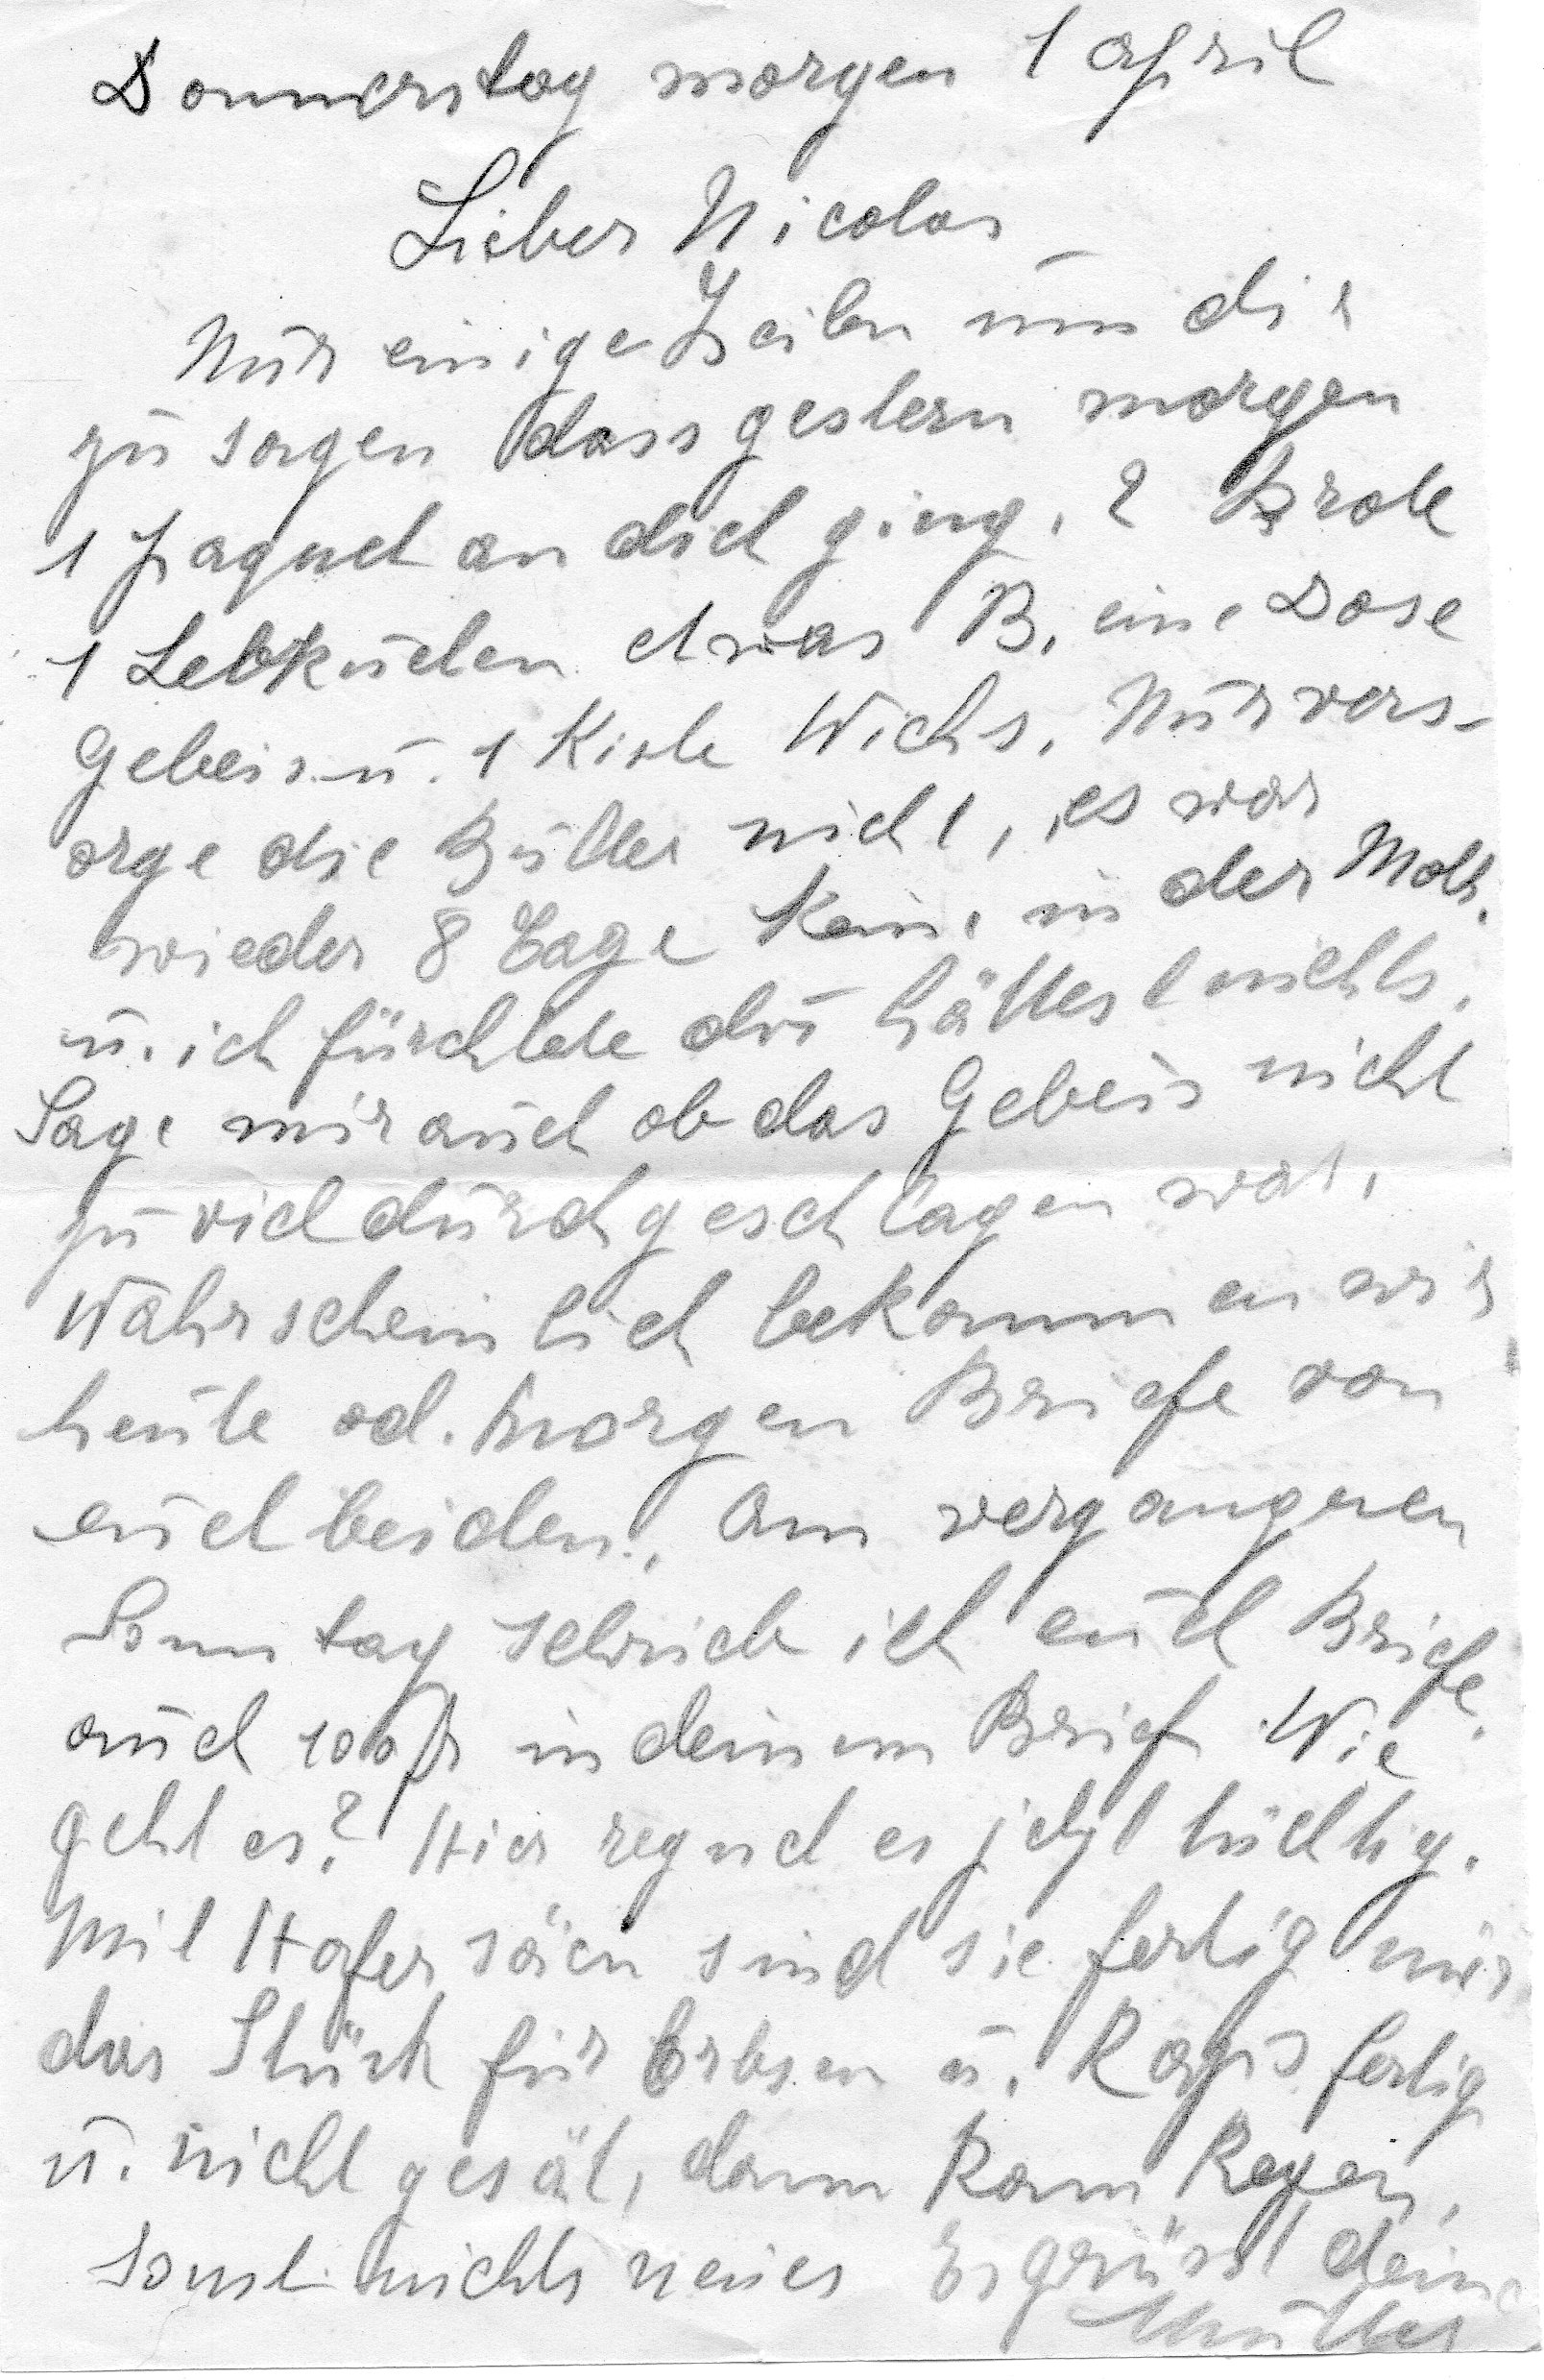 Donnerstag morgen 1 april
Lieber Nicolas
Nur einige Zeilen um dir
zu sagen dass gestern morgen
1 paquet an dich ging. 2 Brote
1 Lebkuchen etwas B. eine Dose
Gebeis u. 1 Kiste Wichs. Nur vers-
orge die Butter nicht, es war
wieder 8 Tage keine in der Molk.
u. ich fürchtete du hättest nichts.
Sage mir auch ob das Gebeis nicht
zu viel durchgeschlagen war,
Wahrscheinlich bekommen wir
heute od. morgen Briefe von
euch beiden. Am vergangnen
Sonntag schrieb ich euch Briefe.
auch 100 fr in deinem Brief. Wie
geht es? Hier regnet es jetzt tüchtig.
Mit Hafer säen sind sie fertig nur
das Stück für Erbsen u. Raps fertig
u. nicht gesät, dann kam Regen,
Sonst nichts neues Es grüsst deine
Mutter